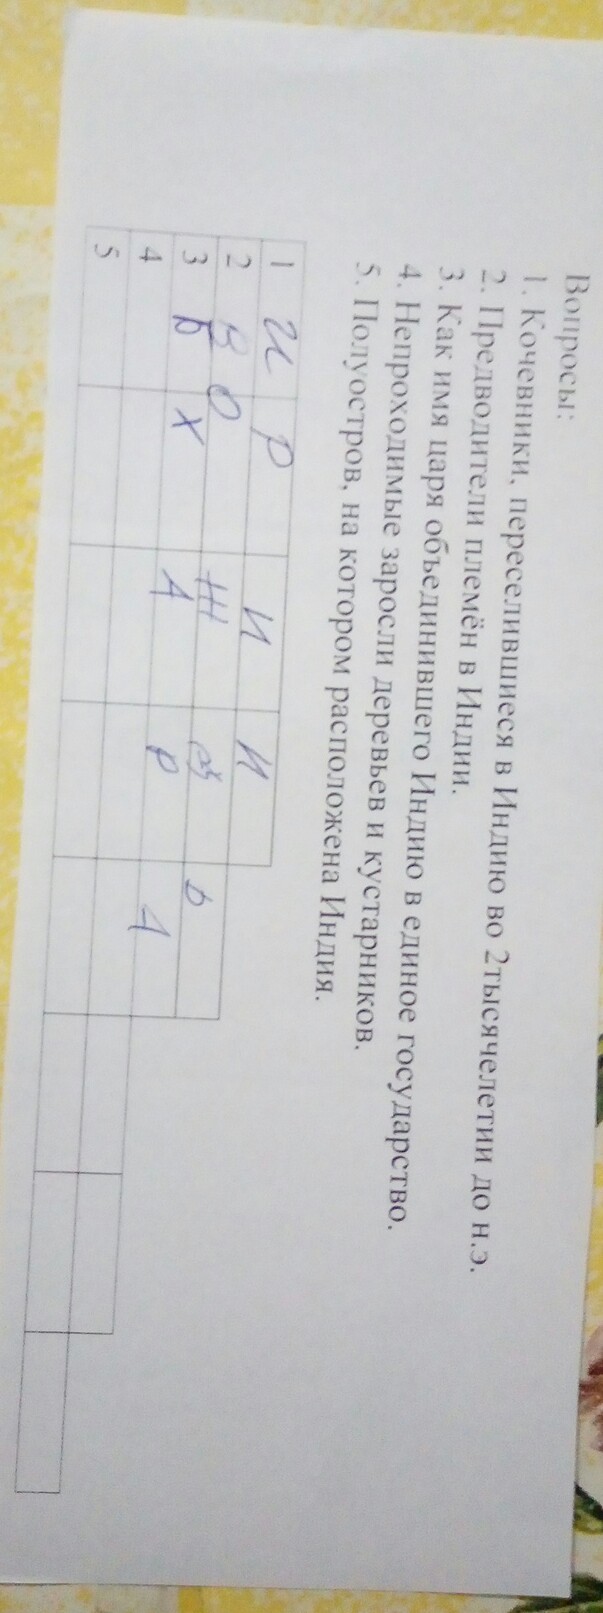 Вопросы:
1. Кочевники, переселившиеся в Индию во 2тысячелетии до н.э.
2. Предводители племён в Индии.
3. Как имя царя объединившего Индию в единое государство.
4. Непроходимые заросли деревьев и кустарников.
5. Полуостров, на котором расположена Индия.
1 И Р И И
2 В О Ж Ь
3 Б Х А Р А
4
5